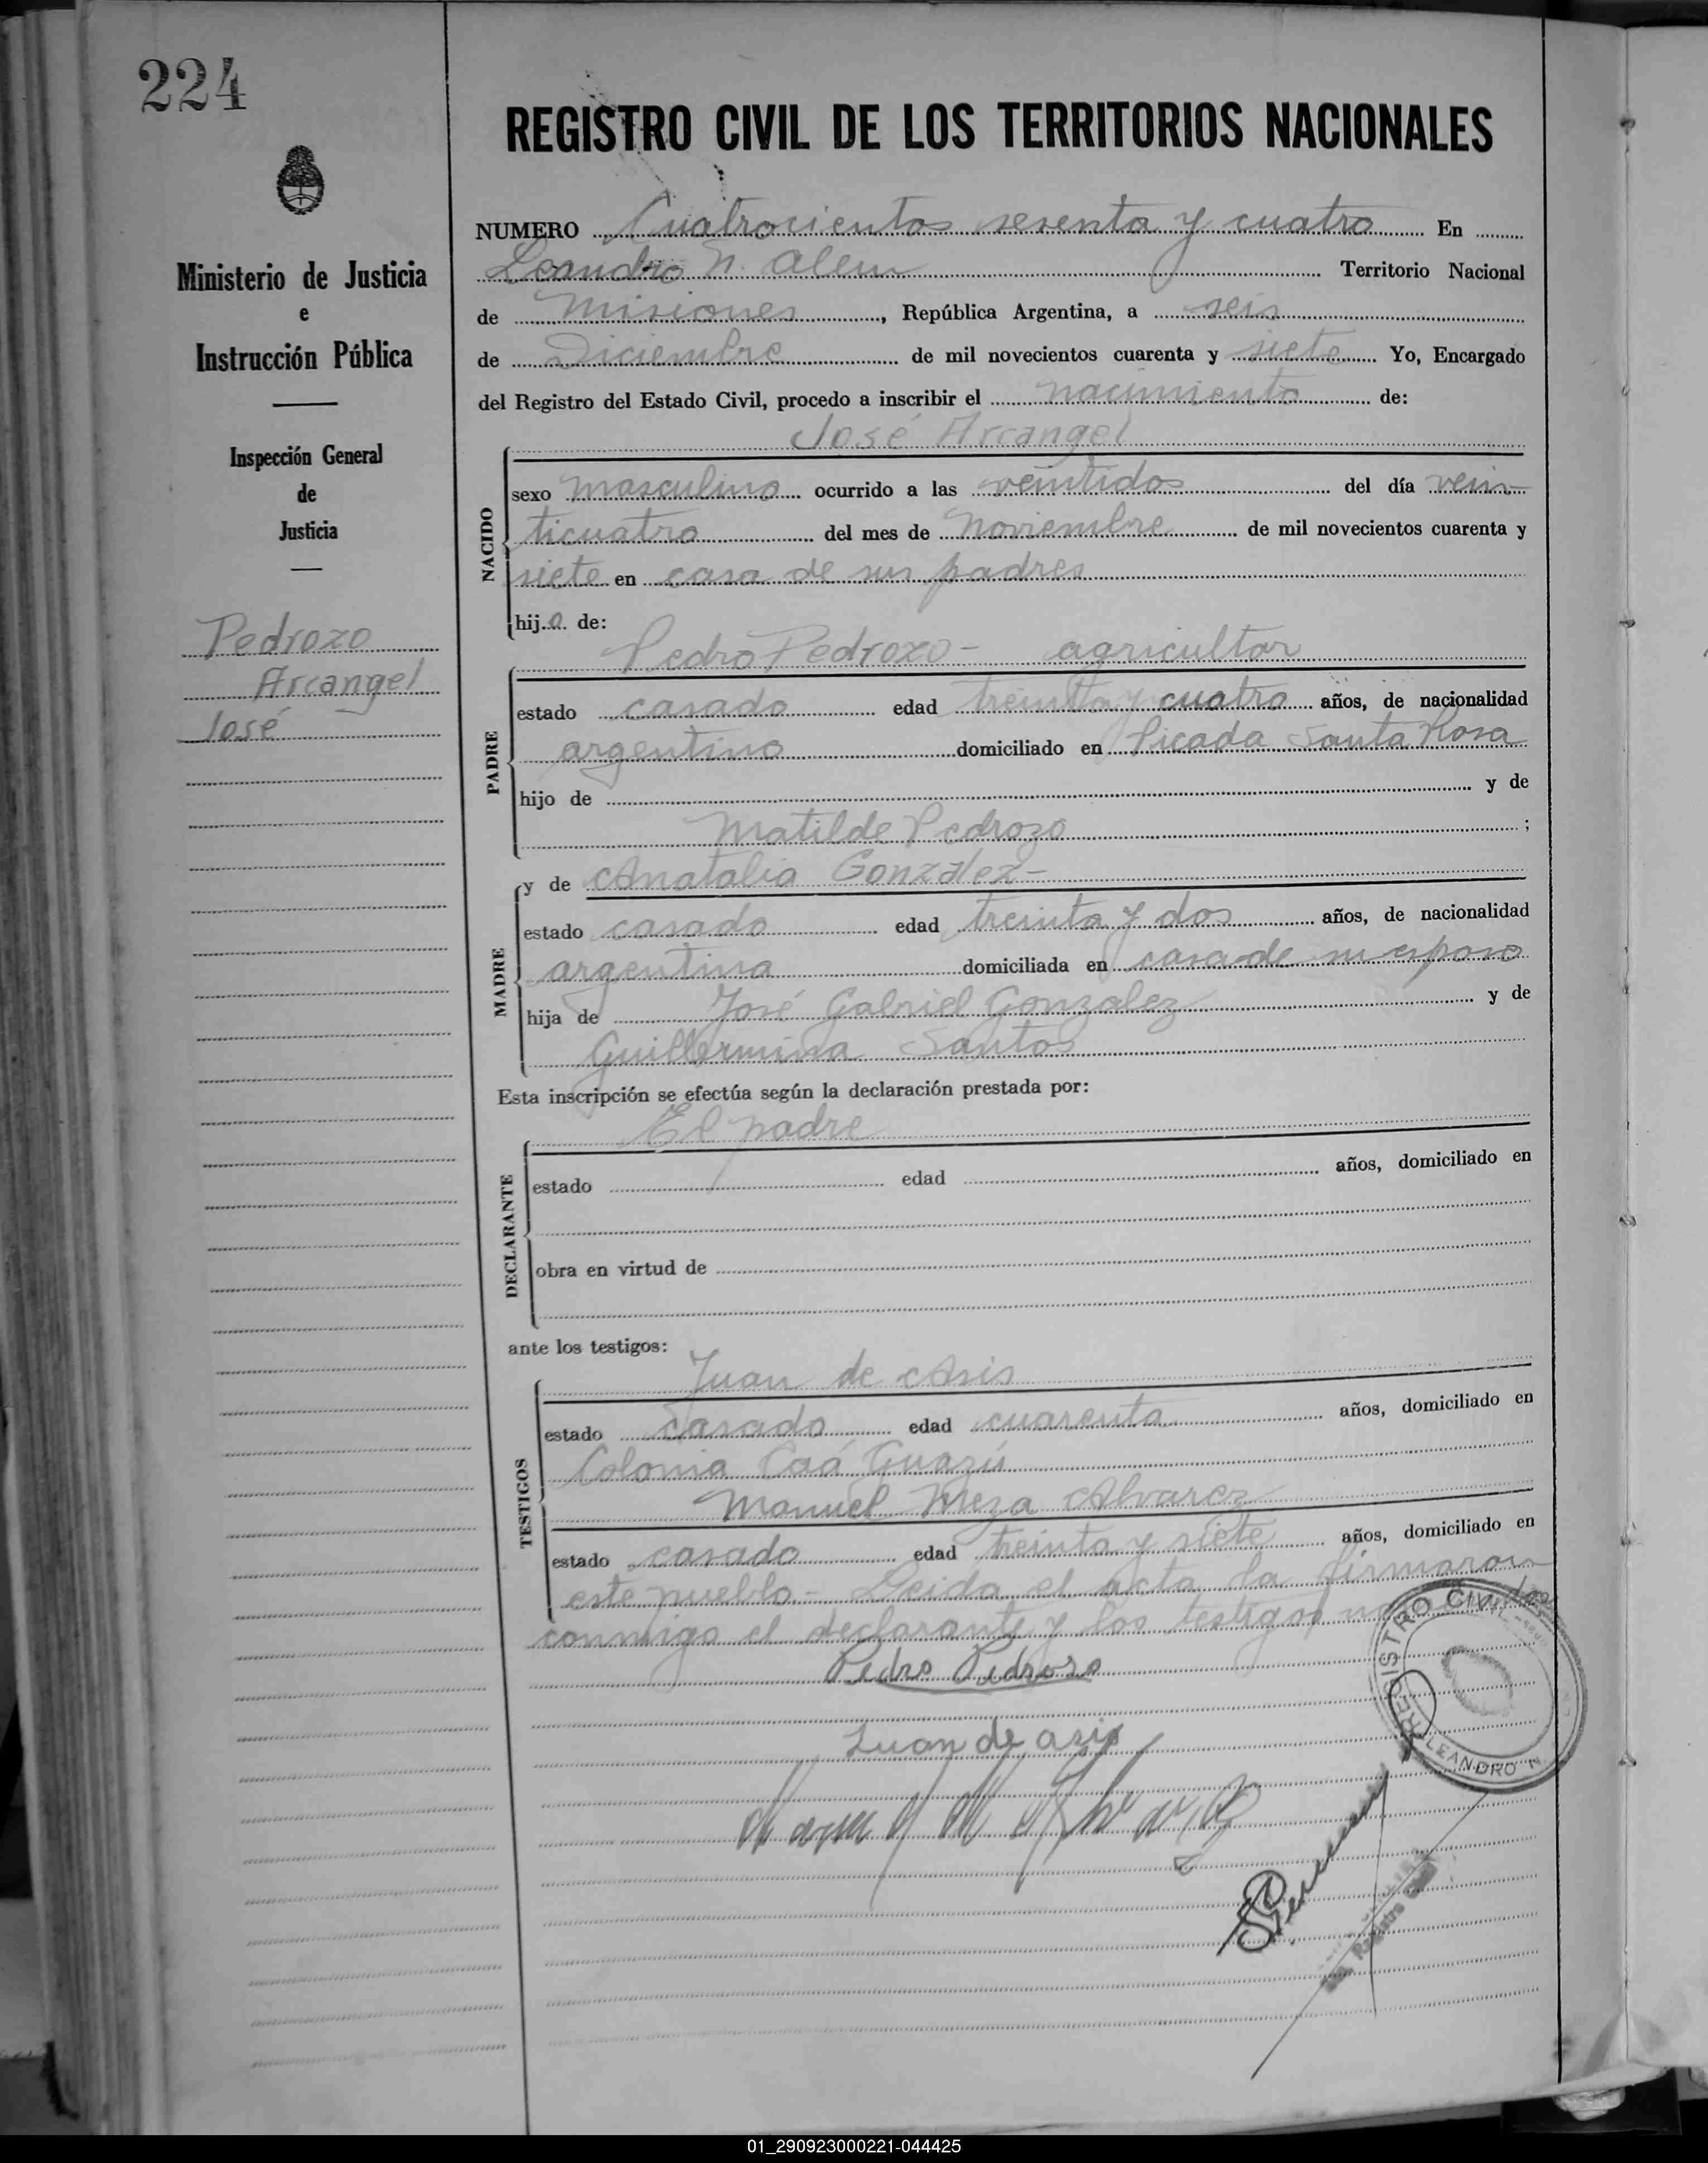 224
REGISTRO CIVIL DE LOS TERRITORIOS NACIONALES
Ministerio de Justicia
e
Instrucción Pública
Inspección General
de
Justicia
Pedrozo
Arcangel
José
NUMERO Cuatrocientos sesenta y cuatro En
Leandro N. Alem Territorio Nacional
de Misiones, República Argentina, a seis
de Diciembre de mil novecientos cuarenta y siete Yo, Encargado
del Registro del Estado Civil, procedo a inscribir el nacimiento de:
José Arcangel
NACIDO
sexo masculino ocurrido a las veintidos del día vein-
ticuatro del mes de Noviembre de mil novecientos cuarenta y
siete en casa de sus padres
hijo de:
Pedro Pedrozo - agricultor
PADRE
estado casado edad treinta y cuatro años, de nacionalidad
argentino domiciliado en Picada Santa Rosa
hijo de y de
Matilde Pedrozo ;
y de Anatalia González-
MADRE
estado casada edad treinta y dos años, de nacionalidad
argentina domiciliada en casa de su esposo
hija de José Gabriel Gonzalez y de
Guillermina Santos
Esta inscripción se efectúa según la declaración prestada por:
El padre
DECLARANTE
estado edad años, domiciliado en
obra en virtud de
ante los testigos:
Juan de Asis
TESTIGOS
estado casado edad cuarenta años, domiciliado en
Colonia Caá Guazú
Manuel Meza Alvarez
estado casado edad treinta y siete años, domiciliado en
este pueblo - Leida el acta la firmaron
conmigo el declarante y los testigos
REGISTRO CIVIL
LEANDRO N.
Pedro Pedrozo
Juan de asis
Registro
01_290923000221-044425